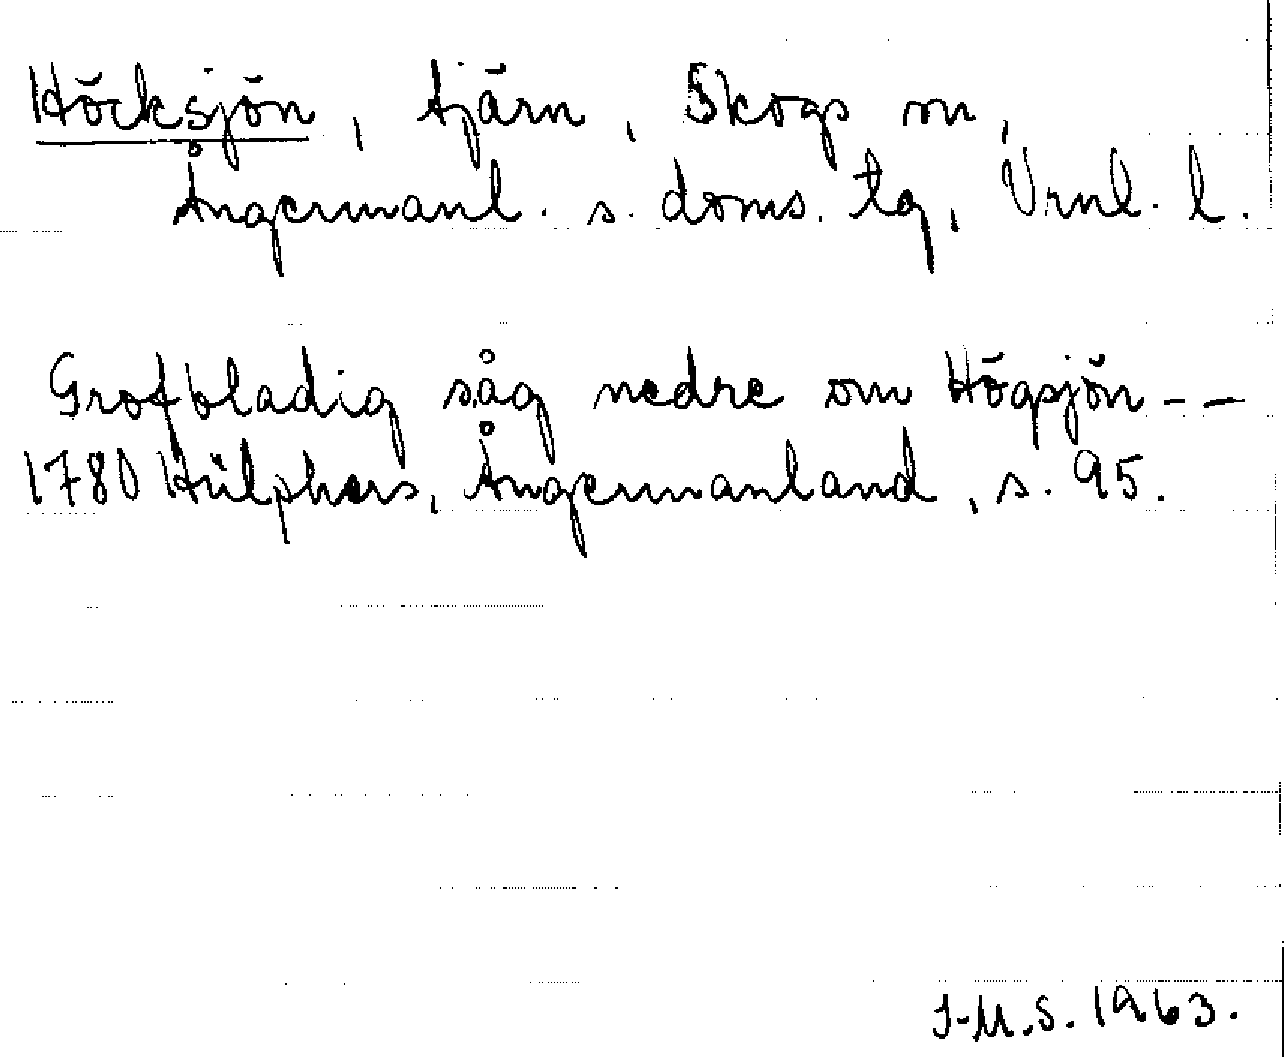 Höcksjön, tjärn, Skogs sn,
Ångermanl. s. doms. tg, Vrnl. l.
Grofbladig såg nedre om Högsjön - -
1780 Hülphers, Ångermanland, s. 95.
I-M.S. 1963.